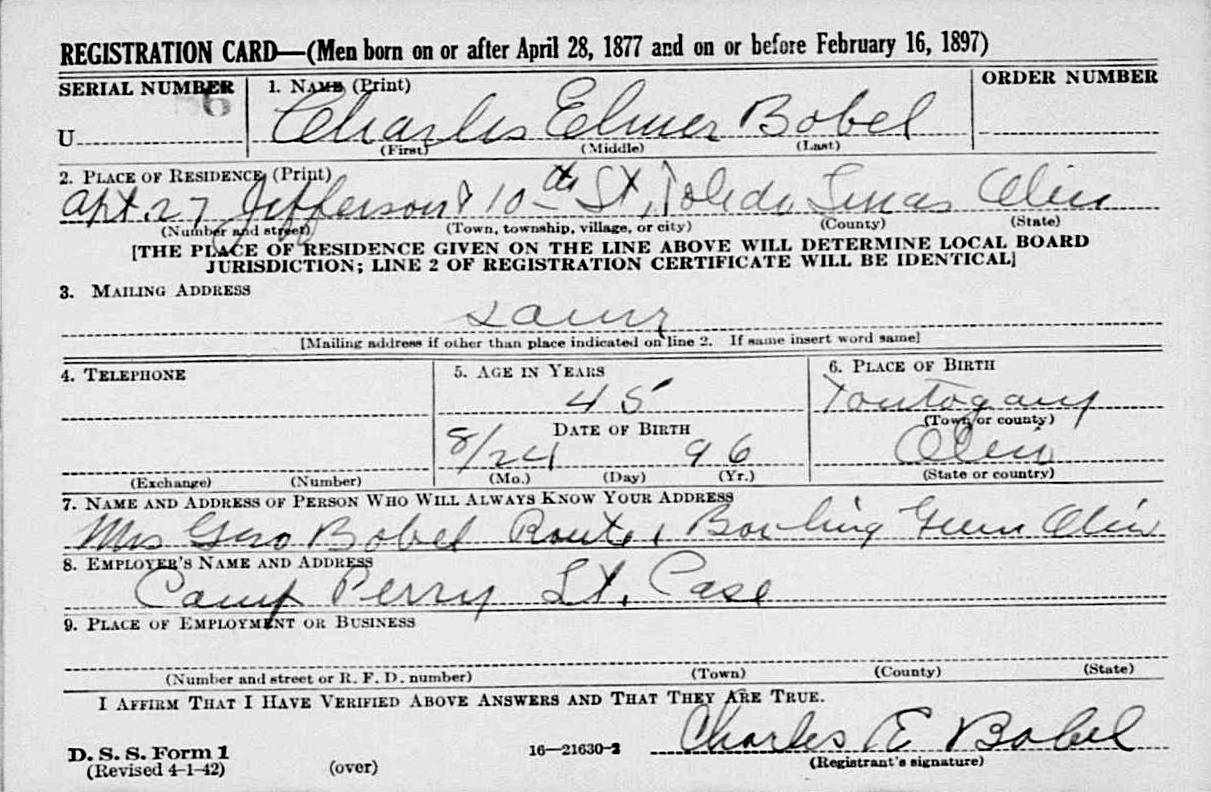 REGISTRATION CARD—(Men born on or after April 28, 1877 and on or before February 16, 1897)
SERIAL NUMBER 1. NAME (Print) ORDER NUMBER
6
U Charles Elmer Bobel
(First) (Middle) (Last)
2. PLACE OF RESIDENCE (Print)
Apt. 27 Jefferson & 10th St, Toledo Lucas Ohio
(Number and street) (Town, township, village, or city) (County) (State)
[THE PLACE OF RESIDENCE GIVEN ON THE LINE ABOVE WILL DETERMINE LOCAL BOARD
JURISDICTION; LINE 2 OF REGISTRATION CERTIFICATE WILL BE IDENTICAL]
3. MAILING ADDRESS
same
[Mailing address if other than place indicated on line 2. If same insert word same]
4. TELEPHONE 5. AGE IN YEARS 6. PLACE OF BIRTH
45 Tontogany
(Town or county)
DATE OF BIRTH
8/24 96 Ohio
(Exchange) (Number) (Mo.) (Day) (Yr.) (State or country)
7. NAME AND ADDRESS OF PERSON WHO WILL ALWAYS KNOW YOUR ADDRESS
Mrs Geo Bobel Route 1 Bowling Green Ohio
8. EMPLOYER'S NAME AND ADDRESS
Camp Perry Lt. Case
9. PLACE OF EMPLOYMENT OR BUSINESS
(Number and street or R. F. D. number) (Town) (County) (State)
I AFFIRM THAT I HAVE VERIFIED ABOVE ANSWERS AND THAT THEY ARE TRUE.
Charles E Bobel
D. S. S. Form 1 16—21630-2
(Revised 4-1-42) (over) (Registrant's signature)